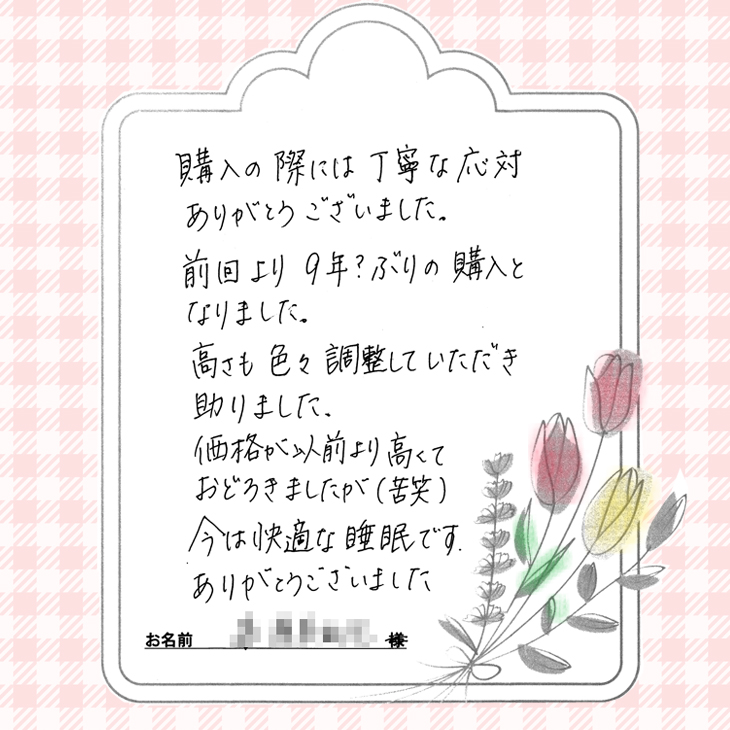 購入の際には丁寧な応対
ありがとうございました。
前回より9年?ぶりの購入と
なりました。
高さも色々調整していただき
助りました、
価格が以前より高くて
おどろきましたが(苦笑)
今は快適な睡眠です.
ありがとうございました
お名前 様